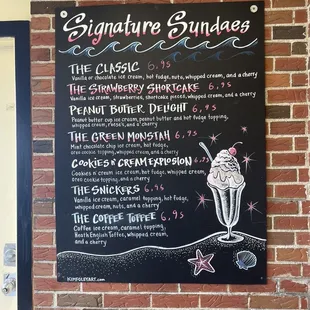 Signature Sundaes
THE CLASSIC 6.95
Vanilla or chocolate ice cream, hot fudge, nuts, whipped cream, and a cherry
THE STRAWBERRY SHORTCAKE 6.95
Vanilla ice cream, strawberries, shortcake pieces, whipped cream, and a cherry
PEANUT BUTTER DELIGHT 6.95
Peanut butter cup ice cream, peanut butter and hot fudge topping,
whipped cream, and a cherry
THE GREEN MONSTAH 6.95
Mint chocolate chip ice cream, hot fudge,
oreo cookie topping, whipped cream, and a cherry
COOKIES N' CREAM EXPLOSION 6.95
Cookies n' cream ice cream, hot fudge, whipped cream,
oreo cookie topping, and a cherry
THE SNICKERS 6.95
Vanilla ice cream, caramel topping, hot fudge,
whipped cream, nuts, and a cherry
THE COFFEE TOFFEE 6.95
Coffee ice cream, caramel topping,
Heath English Toffee, whipped cream,
and a cherry